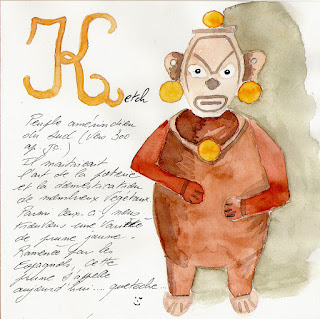 Ketch
Peuple amérindien
du Sud (vers 300
ap. JC.)
Il maîtrisait
l'art de la poterie
et la domestication
de nombreux végétaux.
Parmi ceux-ci nous
trouvons une variété
de prune jaune.
Ramenée par les
Espagnols, cette
prune s'appelle
aujourd'hui.... quetsche...